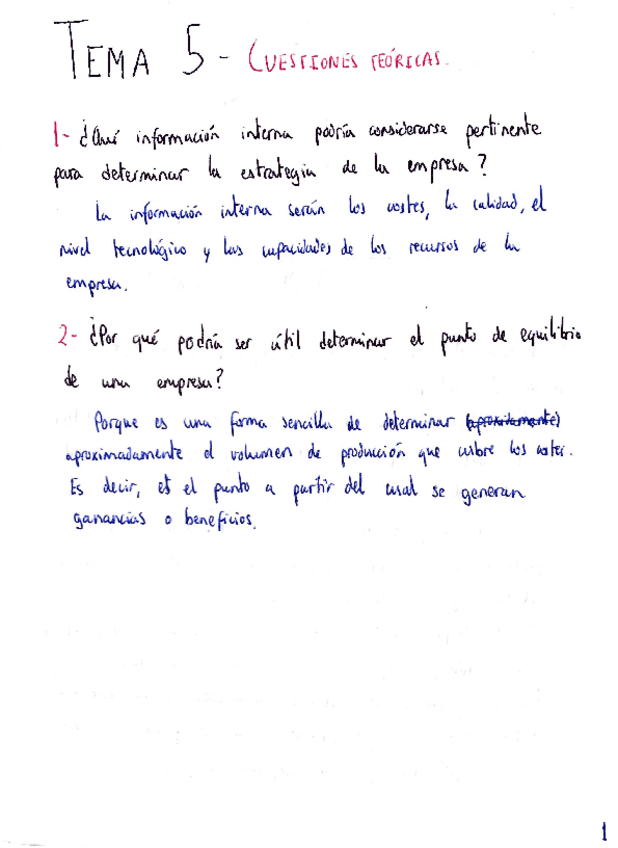 TEMA 5 - CUESTIONES TEÓRICAS.
1- ¿Qué información interna podría considerarse pertinente
para determinar la estrategia de la empresa?
La información interna serán los costes, la calidad, el
nivel tecnológico y las capacidades de los recursos de la
empresa.
2- ¿Por qué podría ser útil determinar el punto de equilibrio
de una empresa?
Porque es una forma sencilla de determinar (aproximamente)
aproximadamente el volumen de producción que cubre los costes.
Es decir, es el punto a partir del cual se generan
ganancias o beneficios.
1